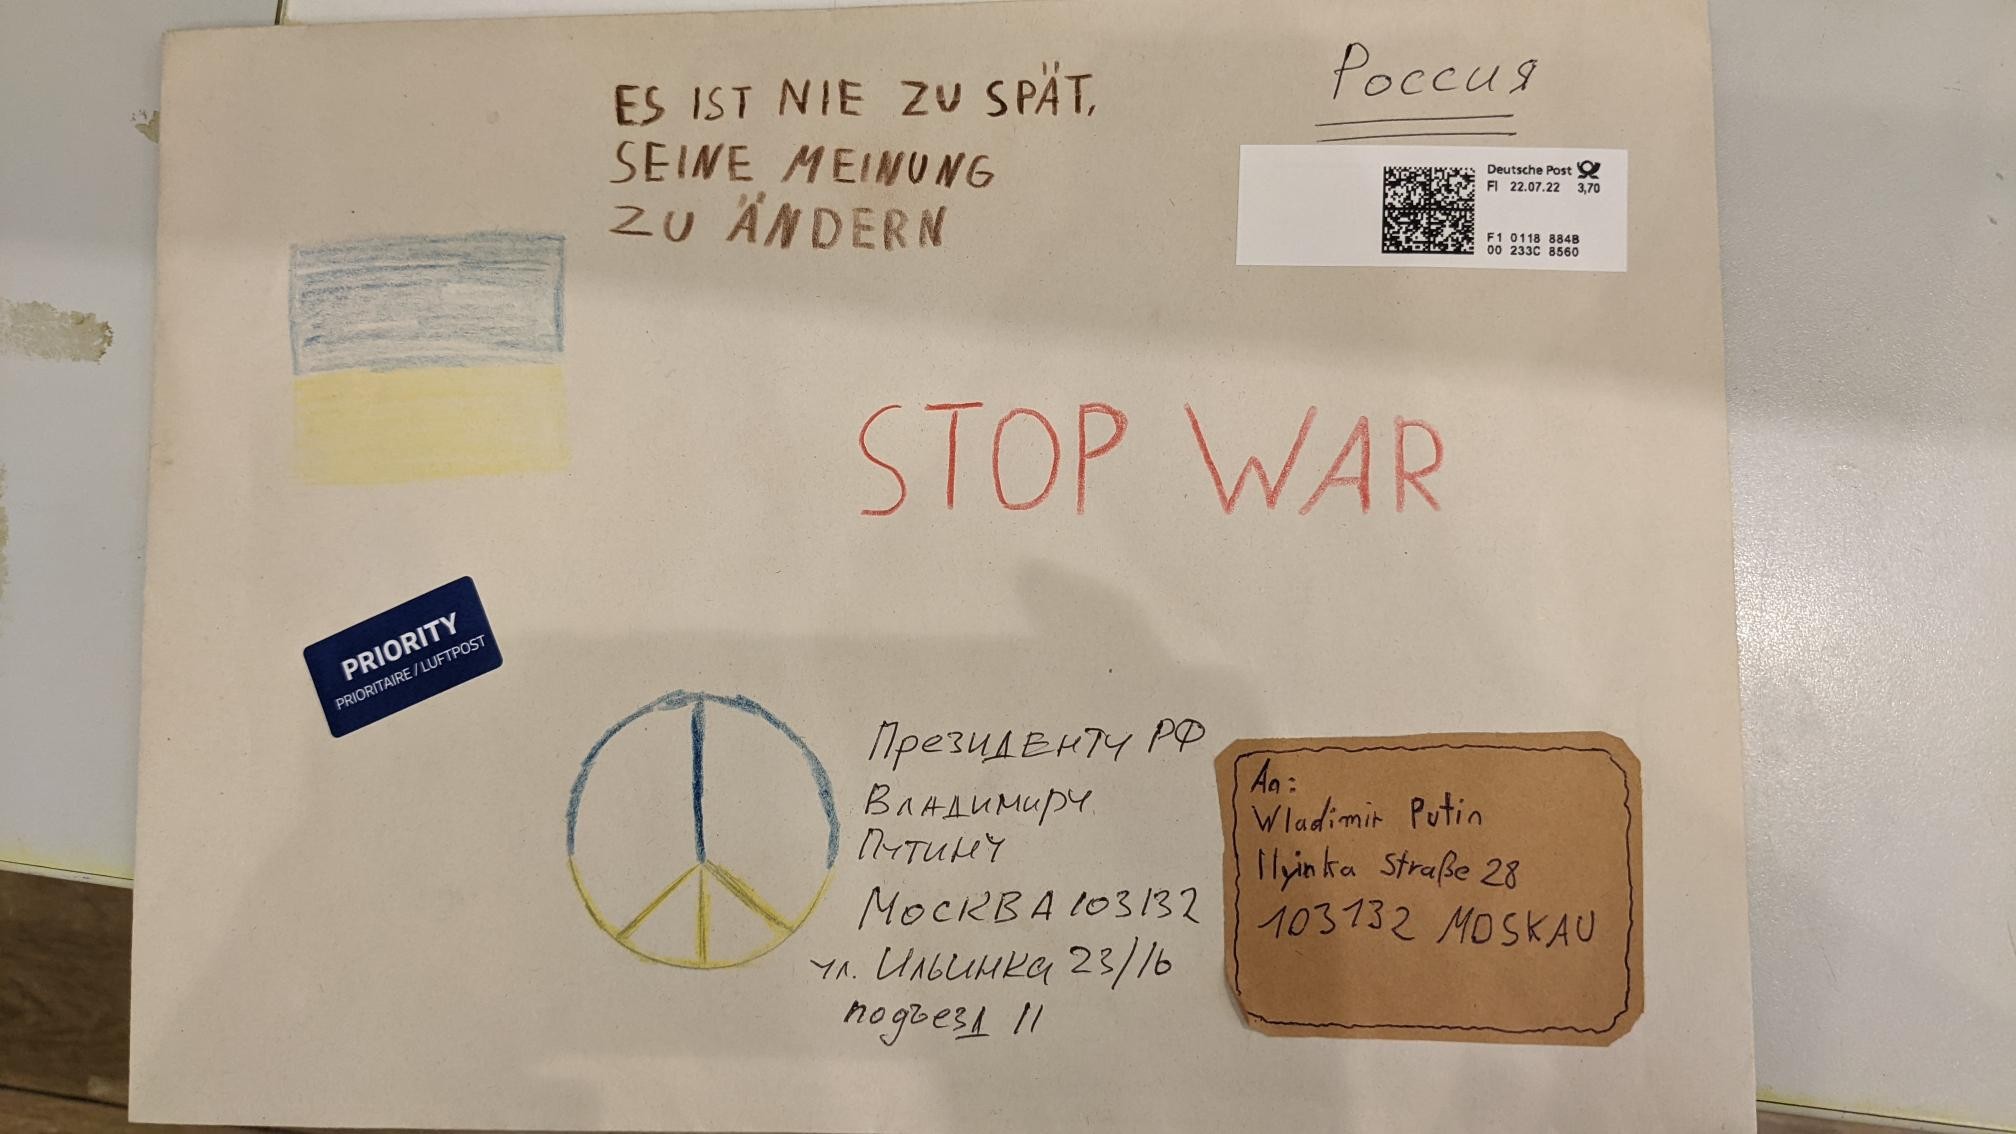 ES IST NIE ZU SPÄT,
SEINE MEINUNG
ZU ÄNDERN
Россия
Deutsche Post
FI 22.07.22 3,70
F1 0118 884B
00 233C 8560
STOP WAR
PRIORITY
PRIORITAIRE / LUFTPOST
Президенту РФ
Владимиру
Путину
Москва 103132
ул. Ильинка 23/16
подъезд 11
An:
Wladimir Putin
Ilyinka Straße 28
103132 MOSKAU